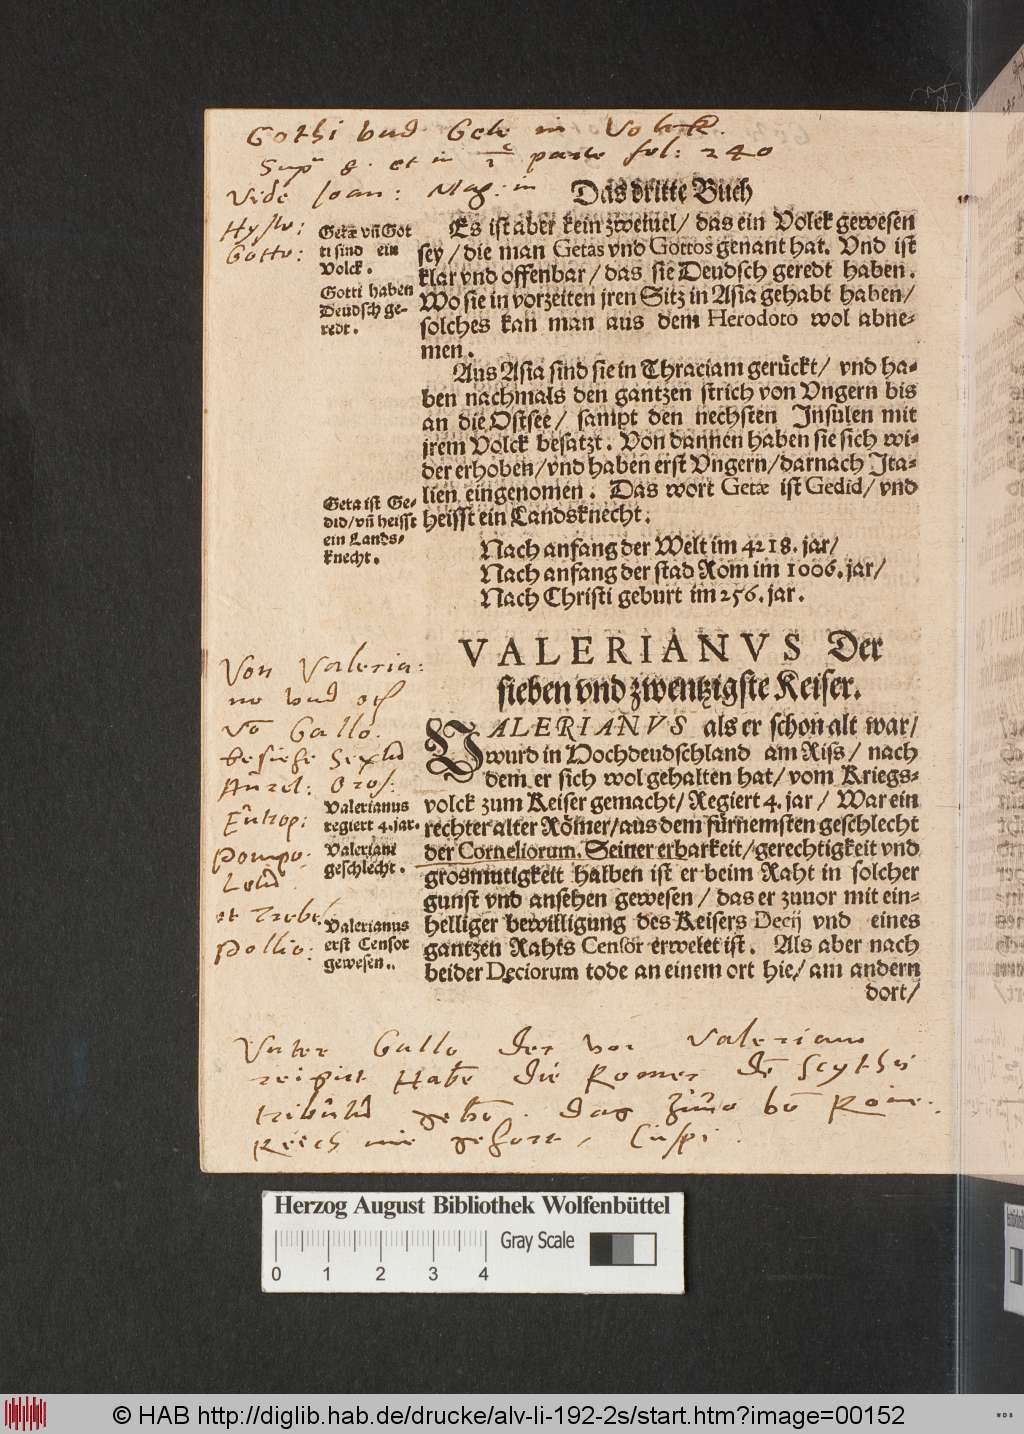 Gothi vnd Gete ein Volck.
Supr 8. et in parte fol: 240
Vide Joan: Mag: in
Hysto:
Gotto:
Das dritte Buch
Getæ vñ Got
ti sind ein
Volck.
Gotti haben
Deudsch ge-
redt.
Es ist aber kein zweiuel/ das ein Volck gewesen
sey/ die man Getas vnd Gottos genant hat. Vnd ist
klar vnd offenbar/ das sie Deudsch geredt haben.
Wo sie in vorzeiten jren Sitz in Asia gehabt haben/
solches kan man aus dem Herodoto wol abne-
men.
Aus Asia sind sie in Thraciam gerückt/ vnd ha-
ben nachmals den gantzen strich von Vngern bis
an die Ostsee/ sampt den nechsten Insulen mit
jrem Volck besatzt. Von dannen haben sie sich wi-
der erhoben/ vnd haben erst Vngern/ darnach Ita-
lien eingenomen. Das wort Getæ ist Gedid/ vnd
heisst ein Landsknecht.
Geta ist Ge-
did/ vñ heisst
ein Lands-
knecht.
Nach anfang der Welt im 4218. jar/
Nach anfang der stad Rom im 1006. jar/
Nach Christi geburt im 256. jar.
VALERIANVS Der
sieben vnd zwentzigste Keiser.
Von Valeria:
no vnd och
võ Gallo.
besiehe Sextũ
Aurel: Oros:
Eutrop:
Pompo:
Letũ
et Trebel
Pollio:
Valerianus
regiert 4. jar.
Valeriani
geschlecht.
Valerianus
erst Censor
gewesen..
VALERIANVS als er schon alt war/
wurd in Hochdeudschland am Riss/ nach
dem er sich wol gehalten hat/ vom Kriegs-
volck zum Keiser gemacht/ Regiert 4. jar/ War ein
rechter alter Römer/ aus dem fürnemsten geschlecht
der Corneliorum. Seiner erbarkeit/ gerechtigkeit vnd
grosmutigkeit halben ist er beim Raht in solcher
gunst vnd ansehen gewesen/ das er zuuor mit ein-
helliger bewilligung des Keisers Decij vnd eines
gantzen Rahts Censor erwelet ist. Als aber nach
beider Deciorum tode an einem ort hie/ am andern
dort/
Vnter Gallo der vor Valeriano
regirt Habẽ die Romer dẽ Scythis
tributũ gebẽ. das zuuo bẽ Rome.
Reich nie gehort, Cuspi.
Herzog August Bibliothek Wolfenbüttel
Gray Scale
0 1 2 3 4
© HAB http://diglib.hab.de/drucke/alv-li-192-2s/start.htm?image=00152